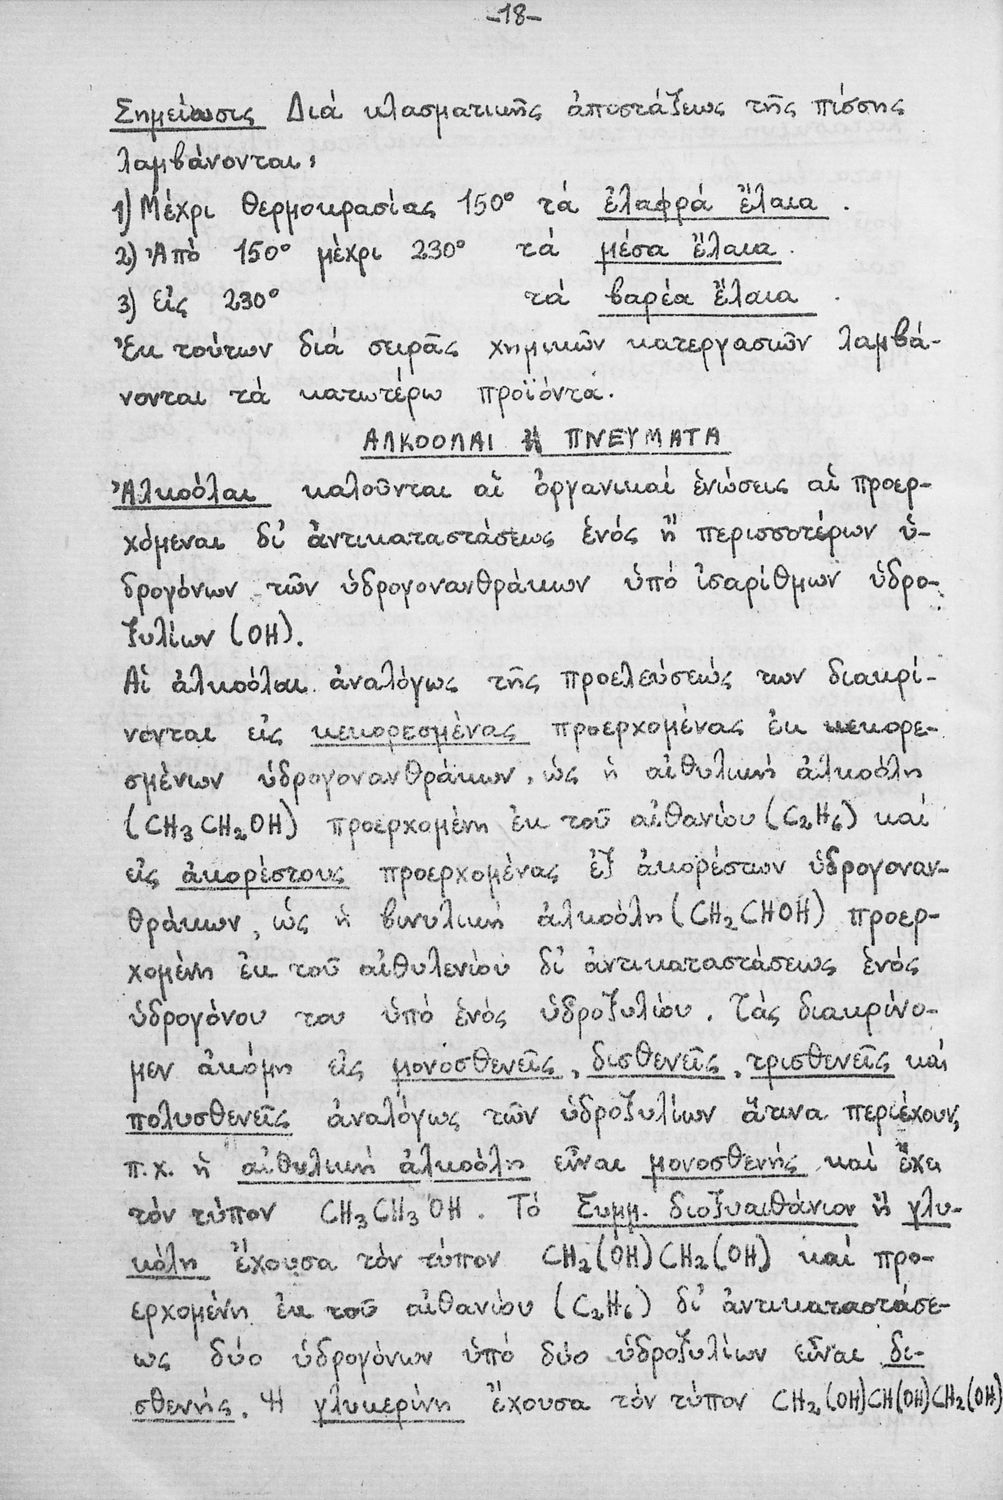 -18-
Σημείωσις Διά κλασματικῆς ἀποστάξεως τῆς πίσσης
λαμβάνονται:
1) Μέχρι θερμοκρασίας 150° τά ἐλαφρά ἔλαια.
2) Ἀπό 150° μέχρι 230° τά μέσα ἔλαια.
3) εἰς 230° τά βαρέα ἔλαια.
Ἐκ τούτων διά σειρᾶς χημικῶν κατεργασιῶν λαμβά-
νονται τά κατωτέρω προϊόντα.
ΑΛΚΟΟΛΑΙ Ἢ ΠΝΕΥΜΑΤΑ
Ἀλκοόλαι καλοῦνται αἵ ὀργανικαί ἑνώσεις αἱ προερ-
χόμεναι δι' ἀντικαταστάσεως ἑνός ἤ περισσοτέρων ὑ-
δρογόνων τῶν ὑδρογονανθράκων ὑπό ἰσαρίθμων ὑδρο-
ξυλίων (ΟΗ).
Αἱ ἀλκοόλαι ἀναλόγως τῆς προελεύσεώς των διακρί-
νονται εἰς κεκορεσμένας προερχομένας ἐκ κεκορε-
σμένων ὑδρογονανθράκων, ὡς ἡ αἰθυλική ἀλκοόλη
(CH₃CH₂OH) προερχομένη ἐκ τοῦ αἰθανίου (C₂H₆) καί
εἰς ἀκορέστους προερχομένας ἐξ ἀκορέστων ὑδρογοναν-
θράκων, ὡς ἡ βινυλική ἀλκοόλη (CH₂CHOH) προερ-
χομένη ἐκ τοῦ αἰθυλενίου δι' ἀντικαταστάσεως ἑνός
ὑδρογόνου του ὑπό ἑνός ὑδροξυλίου. Τάς διακρίνο-
μεν ἀκόμη εἰς μονοσθενεῖς, δισθενεῖς, τρισθενεῖς καί
πολυσθενεῖς ἀναλόγως τῶν ὑδροξυλίων ἅτινα περιέχουν,
π.χ. ἡ αἰθυλική ἀλκοόλη εἶναι μονοσθενής καί ἔχει
τόν τύπον CH₃CH₃OH. Τό Συμμ. διοξυαιθάνιον ἤ γλυ-
κόλη ἔχουσα τόν τύπον CH₂(OH)CH₂(OH) καί προ-
ερχομένη ἐκ τοῦ αἰθανίου (C₂H₆) δι' ἀντικαταστάσε-
ως δύο ὑδρογόνων ὑπό δύο ὑδροξυλίων εἶναι δι-
σθενής. Ἡ γλυκερίνη ἔχουσα τόν τύπον CH₂(OH)CH(OH)CH₂(OH)